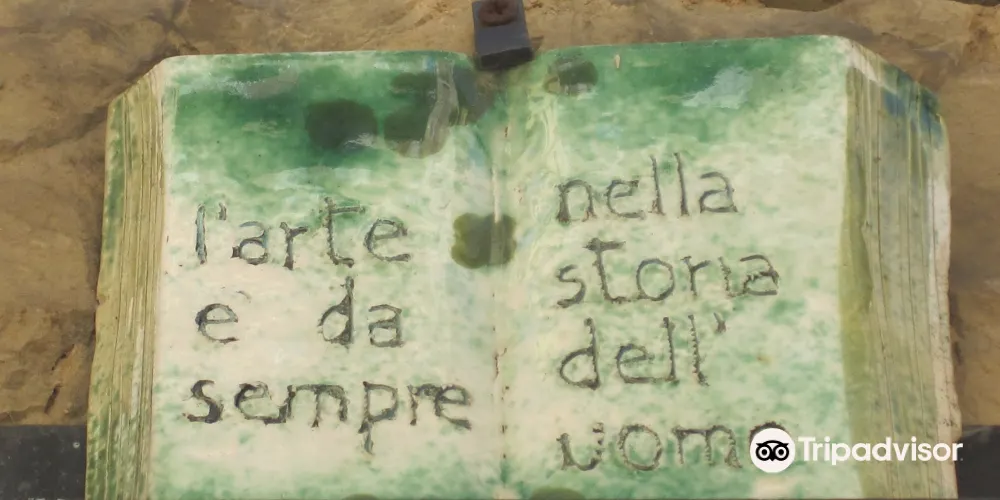 l'arte
è da
sempre
nella
storia
dell'
uomo
Tripadvisor